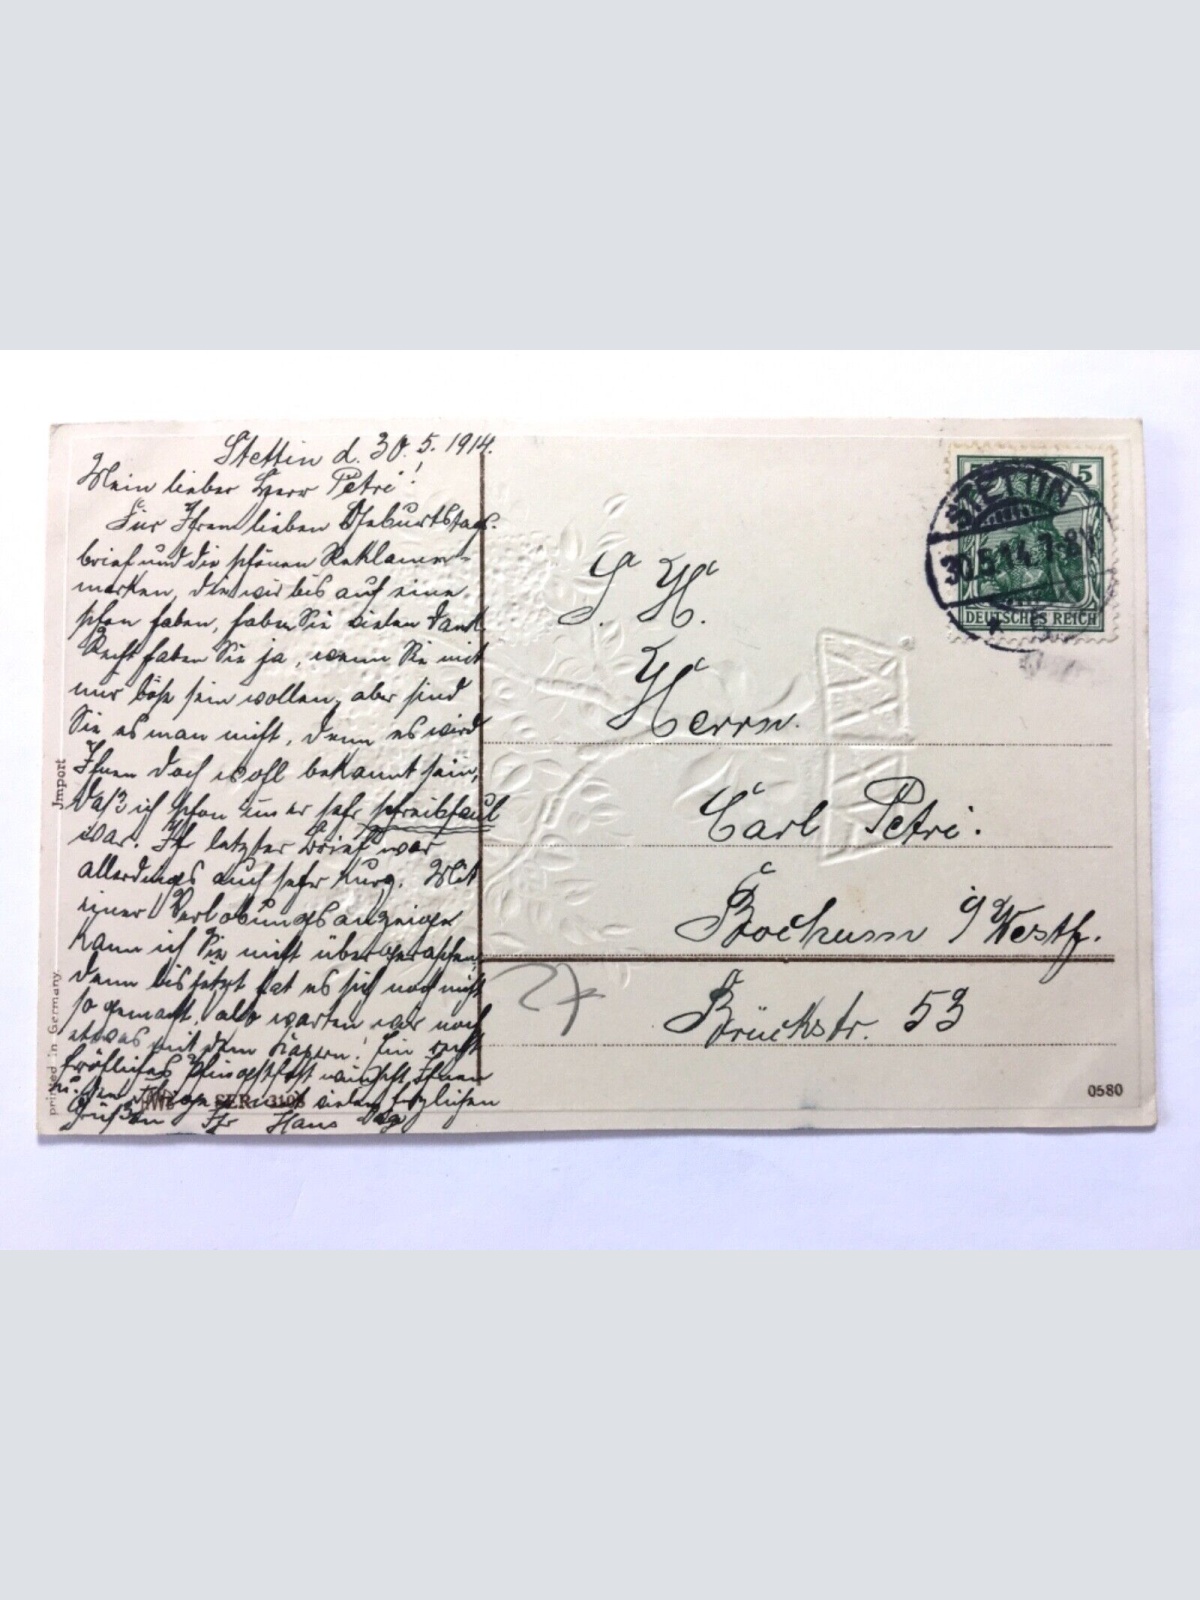 Stettin d. 30.5.1914.
Mein lieber Herr Petri!
Für Ihren lieben Geburtstags-
brief und die schönen Reklame-
marken, die wir bis auf eine
schon haben, haben Sie vielen Dank
Recht haben Sie ja, wenn Sie mit
mir böse sein wollen, aber sind
Sie es man nicht, denn es wird
Ihnen doch wohl bekannt sein,
daß ich schon immer sehr schreibfaul
war. Ihr letzter Brief war
allerdings auch sehr kurz. Mit
einer Verlobungsanzeige
kann ich Sie nicht überraschen
denn bis jetzt hat es sich noch nicht
so gemacht, also warten wir noch
etwas mit dem! Ein recht
fröhliches Pfingstfest wünscht Ihnen
mit vielen herzlichen
Grüßen Ihr Hans
S. H.
Herrn
Carl Petri.
Bochum i/Westf.
Brückstr. 53
STETTIN
30.5.14. 7-8 V
5
DEUTSCHES REICH
Import
printed in Germany
SER. 3108
0580